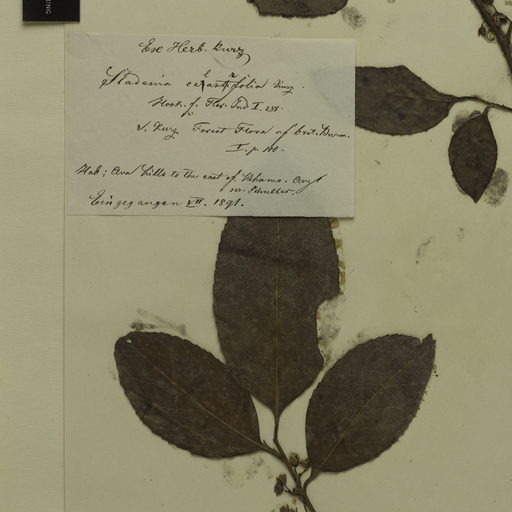 UNG
Exe Herb. Kurz
Sladenia celastrifolia Kurz.
Hook. f. Flor. Ind I. 281.
S. Kurz Forest Flora of brit. Burm.
I. p. 
Hab: Ava hills to the east of Bhamo.
Eingegangen VII. 1891.